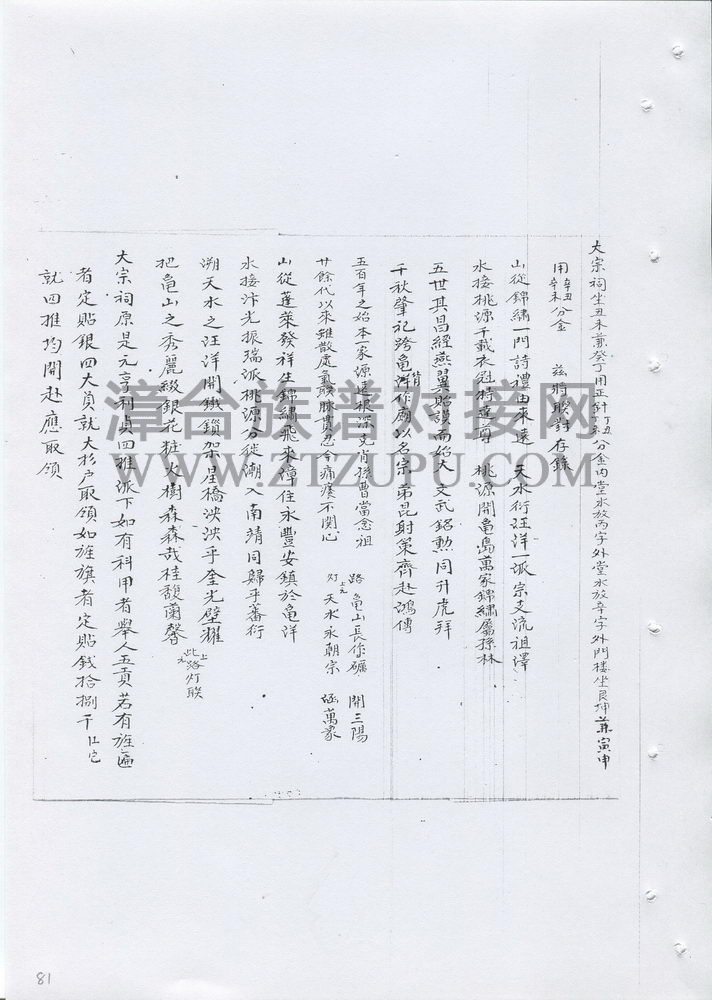 大宗祠坐丑未兼癸丁用正針丁丑丁未分金內堂水放丙字外堂水放辛字外門楼坐艮坤兼寅申
用辛丑辛未分金 茲將聯對存錄
山從錦繡一門詩禮由來遠 天水衍汪洋一派宗支流祖澤
水接桃源千載衣冠特達尊 桃源開亀島萬家錦繡屬孫林
五世其昌經燕翼貽謨而紹大 文武銘勲同升虎拜
千秋肇祀跨亀洋作廟以名宗 弟昆射策齊赴鴻傳
五百年之始本一家源遠根深支肖孫曹當念祖
廿餘代以來雖散處氣聯脉貫忍令痛癢不関心
路 亀山長作礪 開三陽
灯 上元 天水永朝宗 涵萬象
山從蓬萊發祥生錦繡飛來漳住永豐安鎮於亀洋
水接汴光振瑞派桃源分徙潮入南靖同歸乎蕃衍
溯天水之汪洋開鐵鎖架星橋泱泱乎奎光壁耀
把亀山之秀麗綴銀花粧火樹森森哉桂馥蘭馨
此路灯联
大宗祠原是元亨利貞四推派下如有科甲者舉人五貢若有旌匾
者定貼銀四大員就大杉户取領如旌旗者定貼銭拾捌千
就四推均開赴應取領
漳台族谱对接网
WWW.ZTZUPU.COM
81